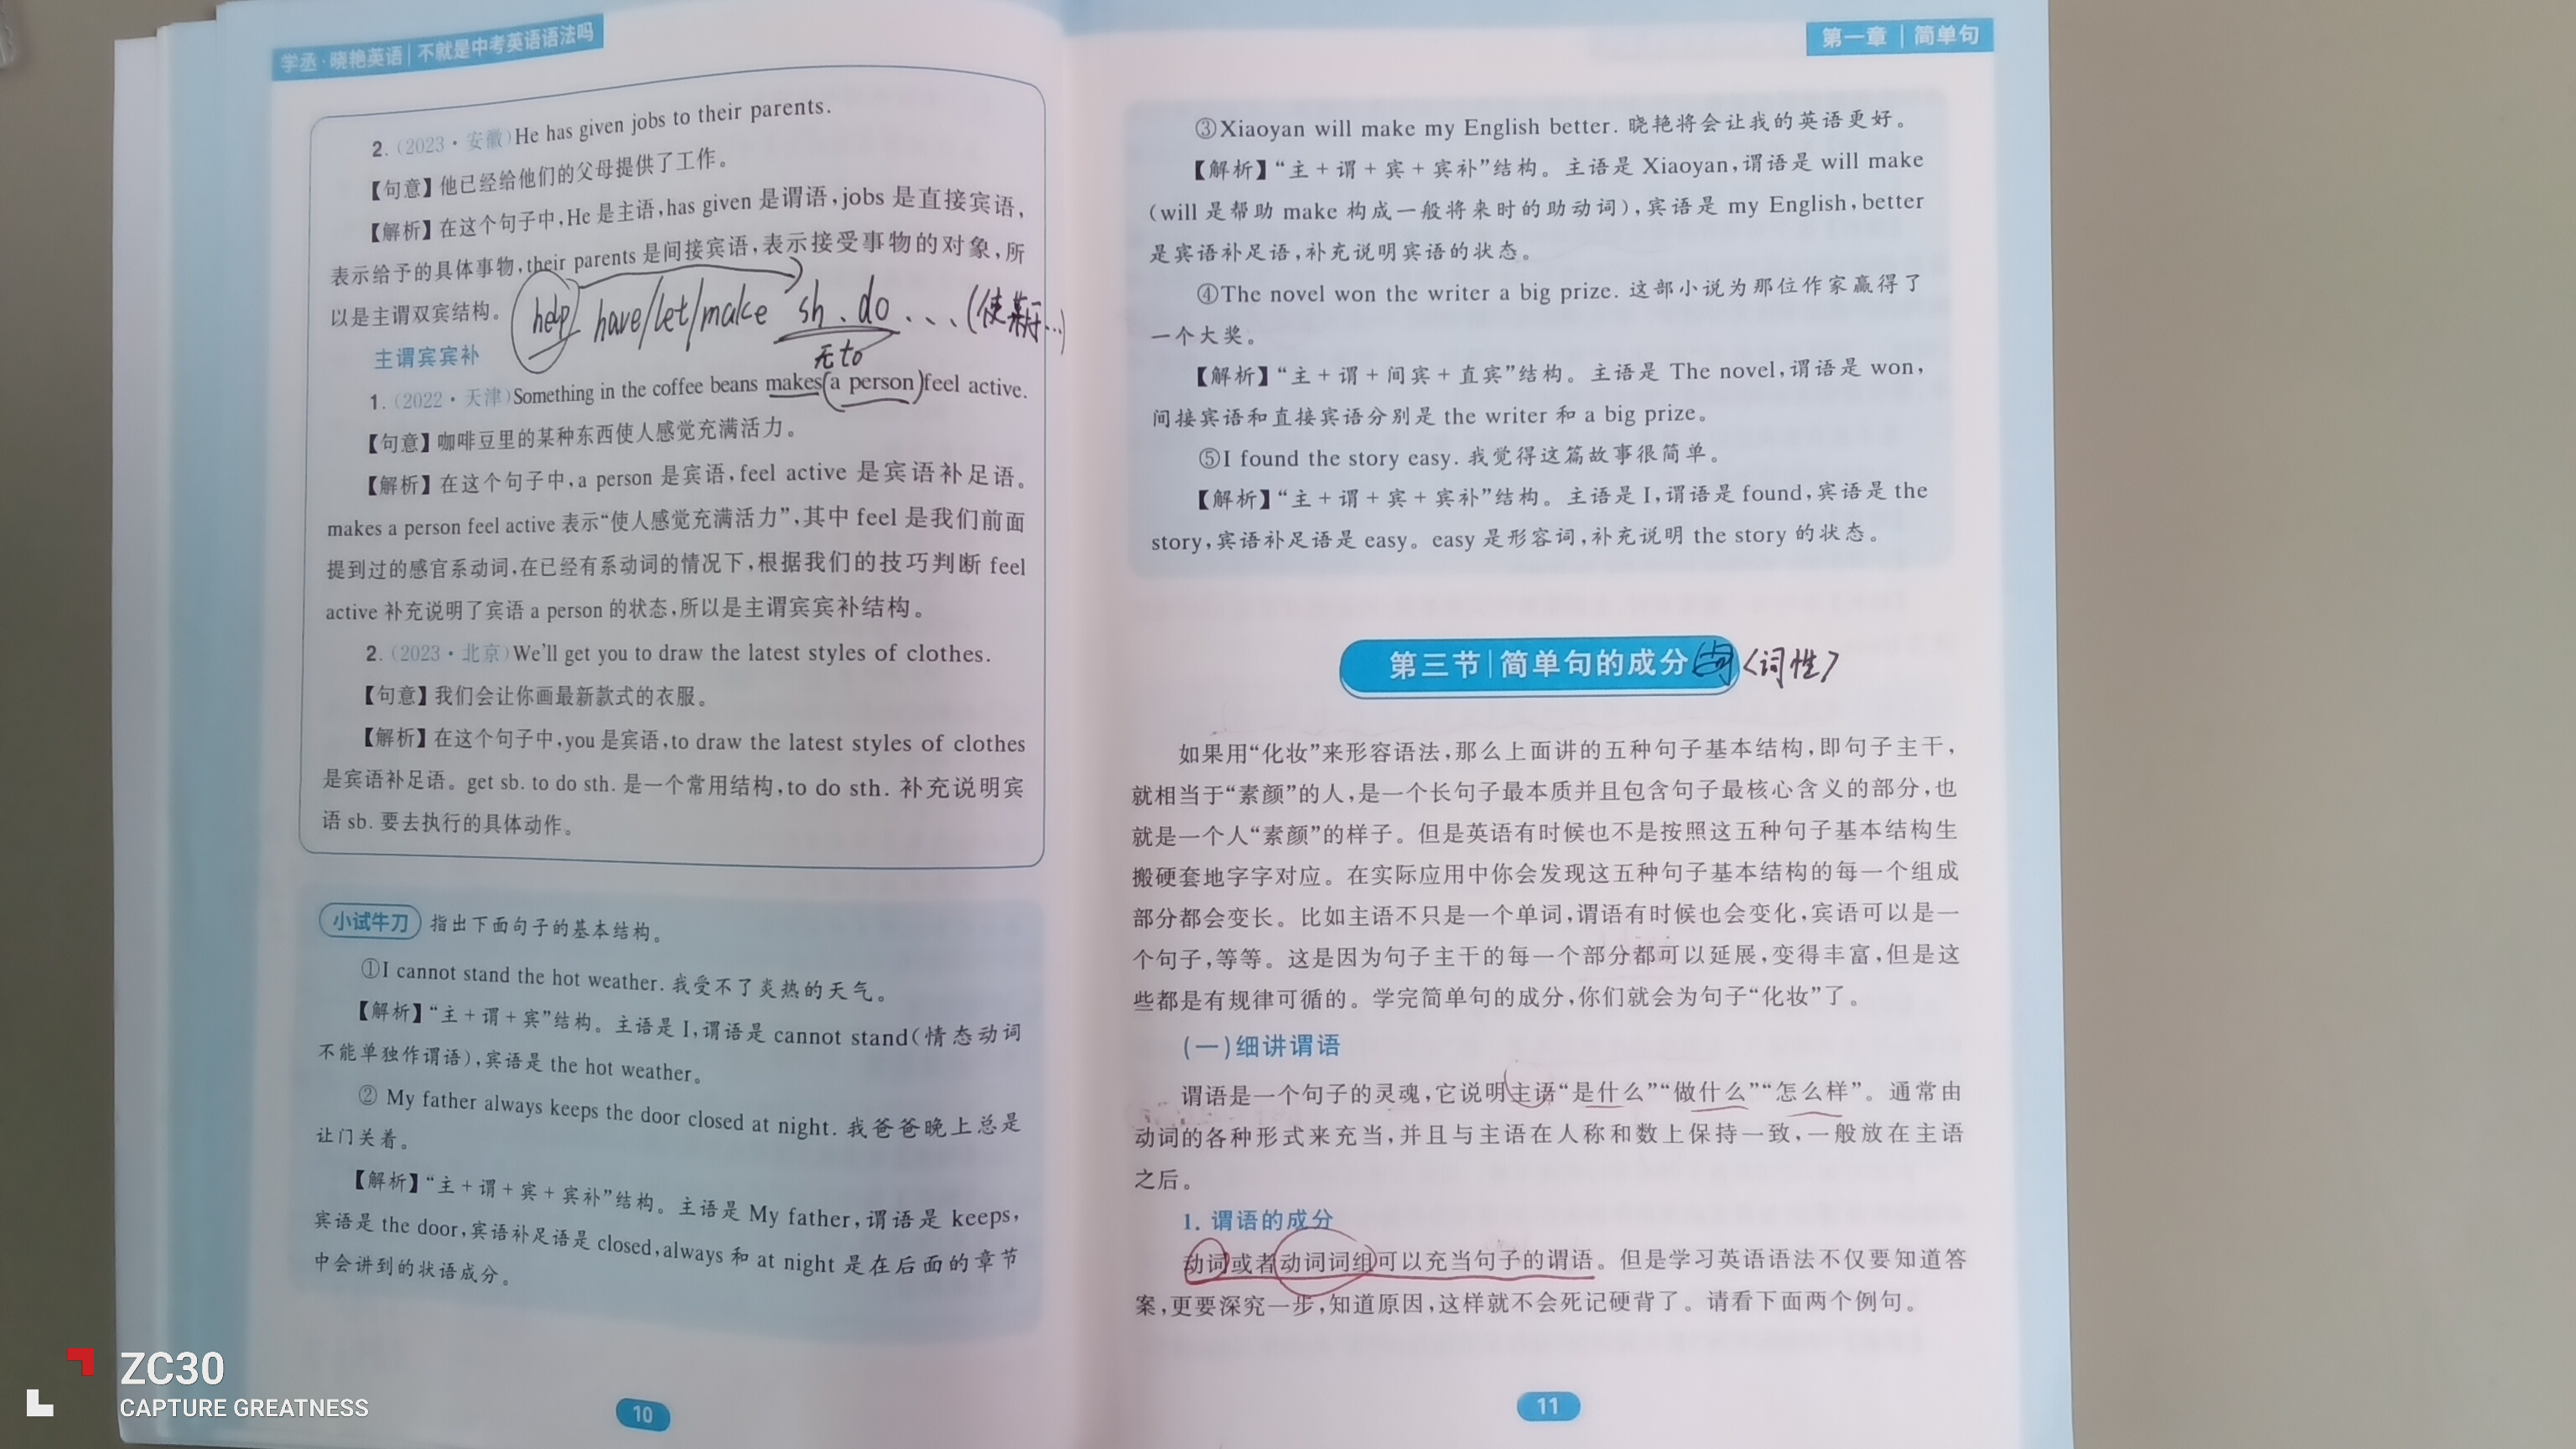 学丞·晓艳英语|不就是中考英语语法吗
2.(2023·安徽)He has given jobs to their parents.
【句意】他已经给他们的父母提供了工作。
【解析】在这个句子中,He 是主语,has given 是谓语,jobs 是直接宾语,
表示给予的具体事物,their parents 是间接宾语,表示接受事物的对象,所
以是主谓双宾结构。
help/ have/let/make sb. do ...(使某
无to
主谓宾宾补
1.(2022·天津)Something in the coffee beans makes(a person)feel active.
【句意】咖啡豆里的某种东西使人感觉充满活力。
【解析】在这个句子中,a person 是宾语,feel active 是宾语补足语。
makes a person feel active 表示“使人感觉充满活力”,其中 feel 是我们前面
提到过的感官系动词,在已经有系动词的情况下,根据我们的技巧判断 feel
active 补充说明了宾语 a person 的状态,所以是主谓宾宾补结构。
2.(2023·北京)We'll get you to draw the latest styles of clothes.
【句意】我们会让你画最新款式的衣服。
【解析】在这个句子中,you 是宾语,to draw the latest styles of clothes
是宾语补足语。get sb. to do sth. 是一个常用结构,to do sth. 补充说明宾
语 sb. 要去执行的具体动作。
小试牛刀 指出下面句子的基本结构。
①I cannot stand the hot weather. 我受不了炎热的天气。
【解析】“主+谓+宾”结构。主语是 I,谓语是 cannot stand(情态动词
不能单独作谓语),宾语是 the hot weather。
② My father always keeps the door closed at night. 我爸爸晚上总是
让门关着。
【解析】“主+谓+宾+宾补”结构。主语是 My father,谓语是 keeps,
宾语是 the door,宾语补足语是 closed,always 和 at night 是在后面的章节
中会讲到的状语成分。
10
第一章|简单句
③Xiaoyan will make my English better. 晓艳将会让我的英语更好。
【解析】“主+谓+宾+宾补”结构。主语是 Xiaoyan,谓语是 will make
(will 是帮助 make 构成一般将来时的助动词),宾语是 my English,better
是宾语补足语,补充说明宾语的状态。
④The novel won the writer a big prize. 这部小说为那位作家赢得了
一个大奖。
【解析】“主+谓+间宾+直宾”结构。主语是 The novel,谓语是 won,
间接宾语和直接宾语分别是 the writer 和 a big prize。
⑤I found the story easy. 我觉得这篇故事很简单。
【解析】“主+谓+宾+宾补”结构。主语是 I,谓语是 found,宾语是 the
story,宾语补足语是 easy。easy 是形容词,补充说明 the story 的状态。
第三节|简单句的成分〈词性〉
如果用“化妆”来形容语法,那么上面讲的五种句子基本结构,即句子主干,
就相当于“素颜”的人,是一个长句子最本质并且包含句子最核心含义的部分,也
就是一个人“素颜”的样子。但是英语有时候也不是按照这五种句子基本结构生
搬硬套地字字对应。在实际应用中你会发现这五种句子基本结构的每一个组成
部分都会变长。比如主语不只是一个单词,谓语有时候也会变化,宾语可以是一
个句子,等等。这是因为句子主干的每一个部分都可以延展,变得丰富,但是这
些都是有规律可循的。学完简单句的成分,你们就会为句子“化妆”了。
(一)细讲谓语
谓语是一个句子的灵魂,它说明主语“是什么”“做什么”“怎么样”。通常由
动词的各种形式来充当,并且与主语在人称和数上保持一致,一般放在主语
之后。
1. 谓语的成分
动词或者动词词组可以充当句子的谓语。但是学习英语语法不仅要知道答
案,更要深究一步,知道原因,这样就不会死记硬背了。请看下面两个例句。
11
ZC30
CAPTURE GREATNESS